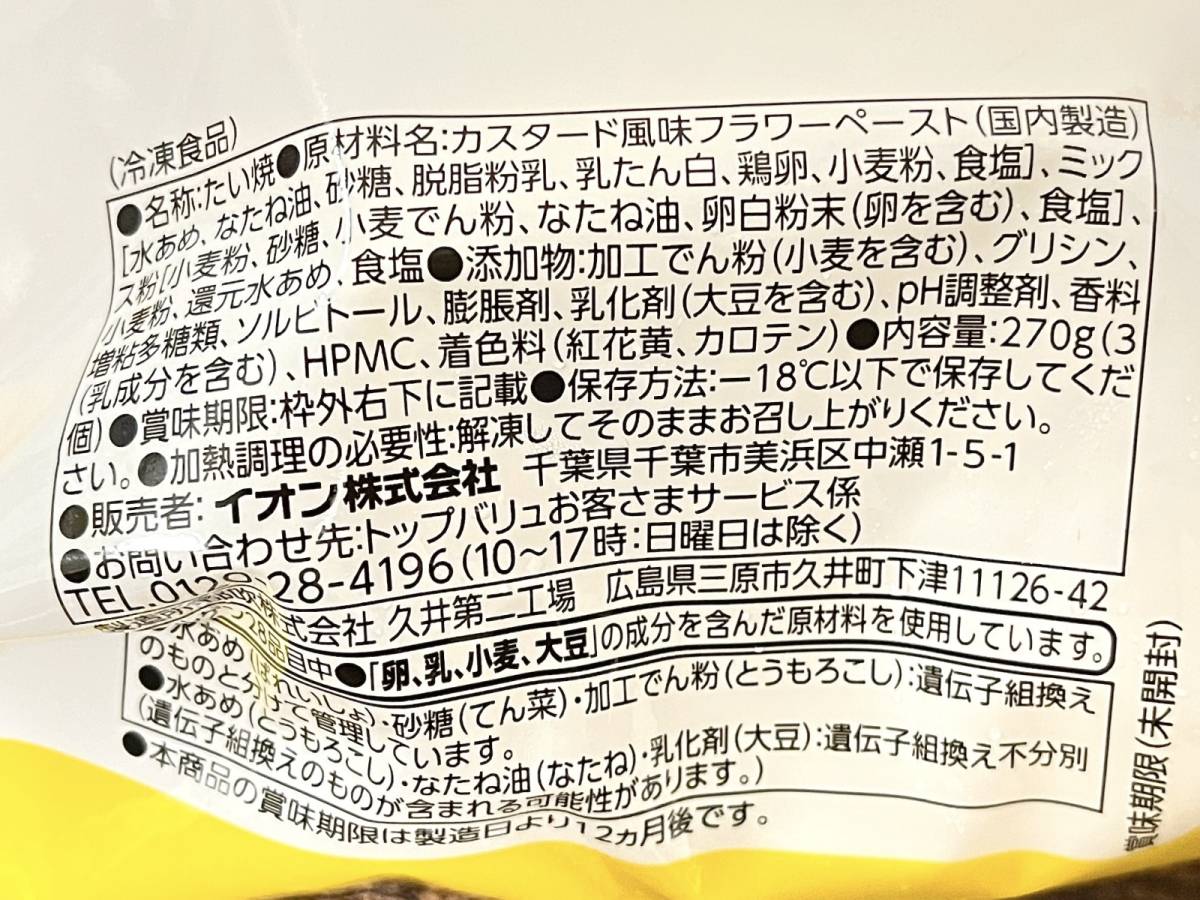 (冷凍食品)
●名称:たい焼●原材料名:カスタード風味フラワーペースト(国内製造)
[水あめ、なたね油、砂糖、脱脂粉乳、乳たん白、鶏卵、小麦粉、食塩]、ミック
ス粉[小麦粉、砂糖、小麦でん粉、なたね油、卵白粉末(卵を含む)、食塩]、
小麦粉、還元水あめ、食塩●添加物:加工でん粉(小麦を含む)、グリシン、
増粘多糖類、ソルビトール、膨脹剤、乳化剤(大豆を含む)、pH調整剤、香料
(乳成分を含む)、HPMC、着色料(紅花黄、カロテン)●内容量:270g(3
個)●賞味期限:枠外右下に記載●保存方法:−18℃以下で保存してくだ
さい。●加熱調理の必要性:解凍してそのままお召し上がりください。
●販売者:イオン株式会社 千葉県千葉市美浜区中瀬1-5-1
●お問い合わせ先:トップバリュお客さまサービス係
TEL.012 28-4196(10〜17時:日曜日は除く)
式会社 久井第二工場 広島県三原市久井町下津11126-42
28品目中●「卵、乳、小麦、大豆」の成分を含んだ原材料を使用しています。
水あめ(ばれいしょ)・砂糖(てん菜)・加工でん粉(とうもろこし):遺伝子組換え
のものと分けて管理しています。
●水あめ(とうもろこし)・なたね油(なたね)・乳化剤(大豆):遺伝子組換え不分別
(遺伝子組換えのものが含まれる可能性があります。)
●本商品の賞味期限は製造日より12カ月後です。
賞味期限(未開封)